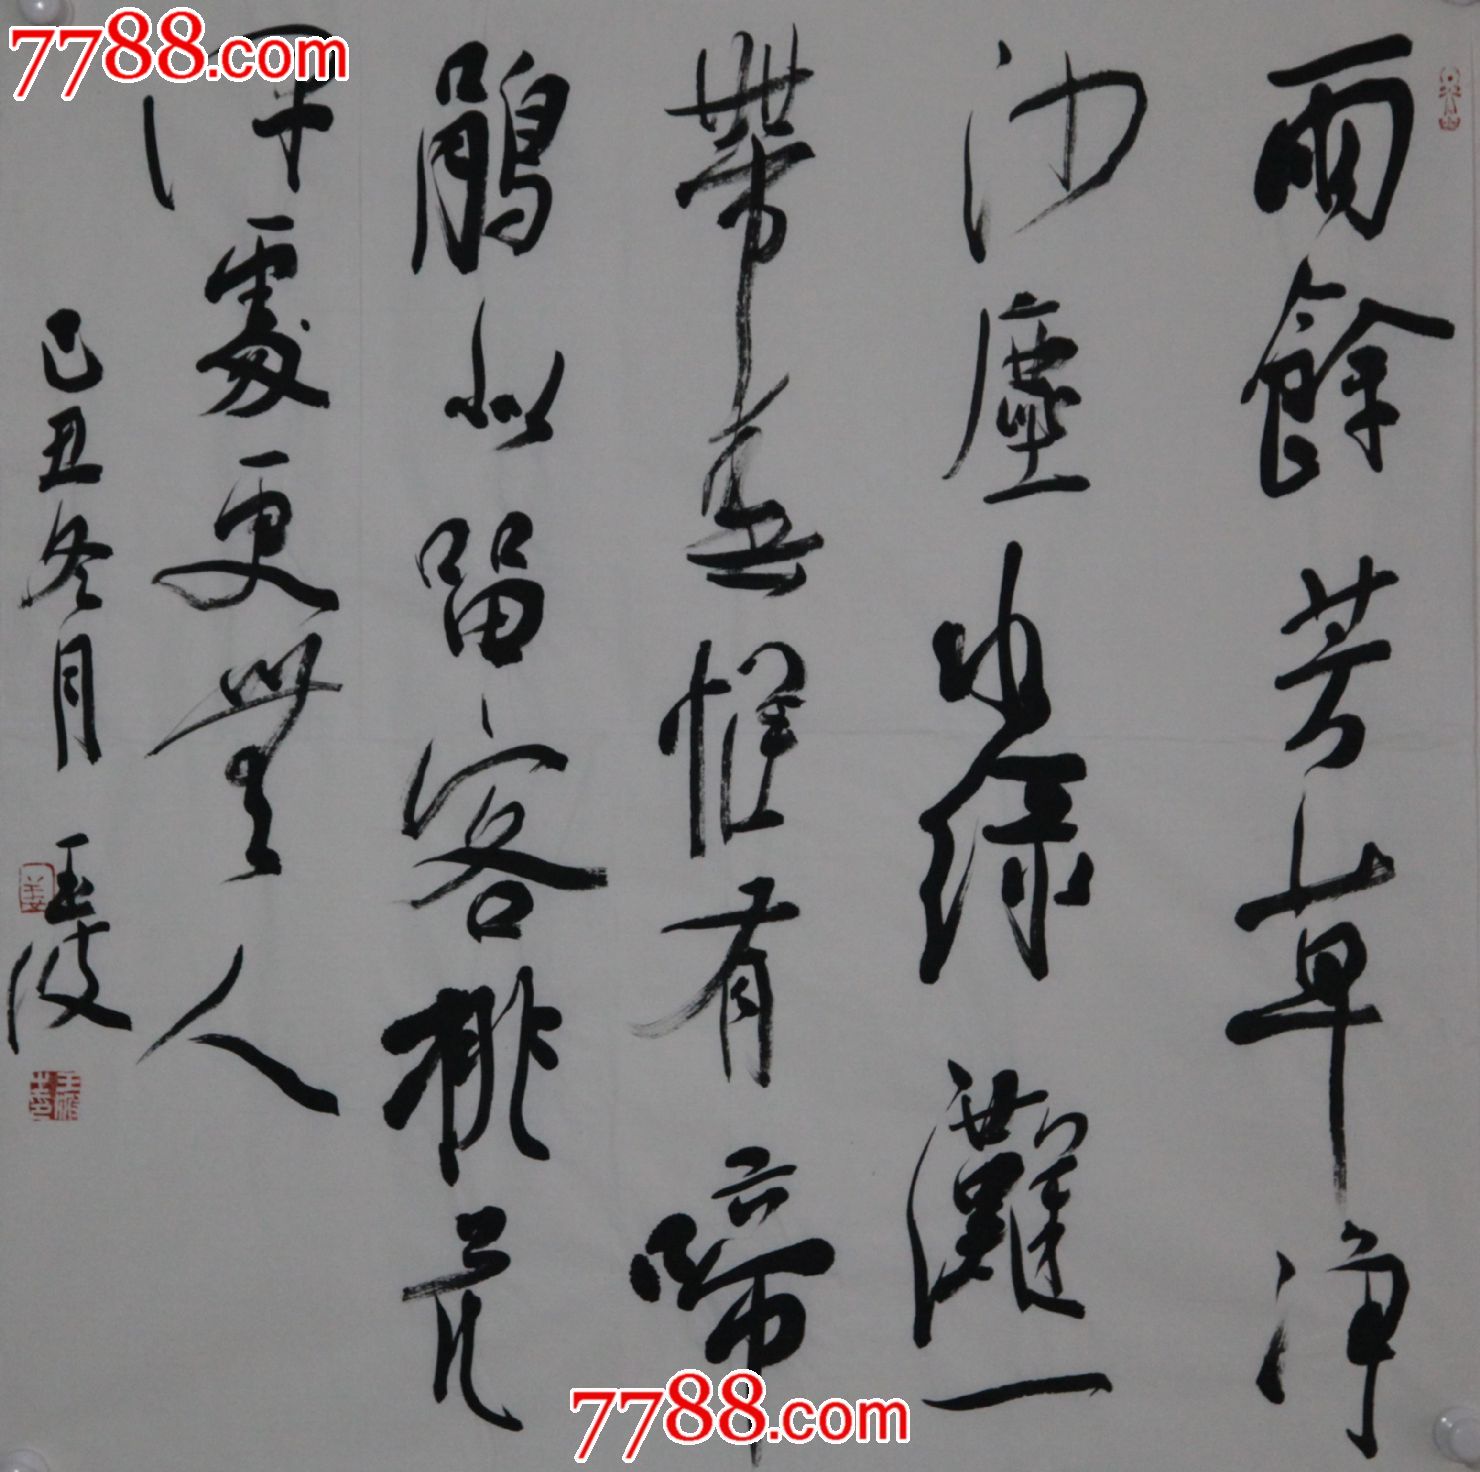 雨餘芳草淨
沙塵水綠灘一
帶春惟有啼
鵑似留客桃花
深處更無人
己丑冬月
7788.com
7788.com